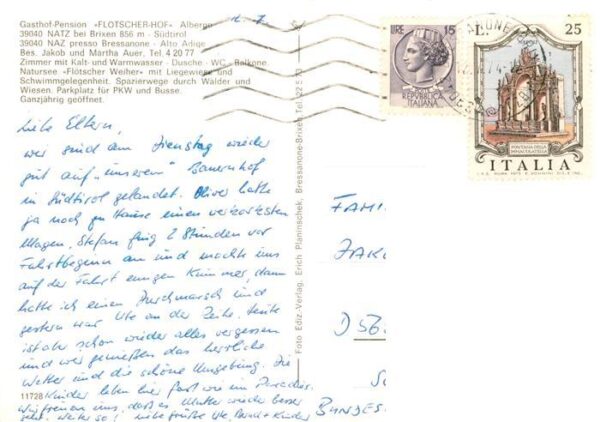 Gasthof-Pension »FLÖTSCHER-HOF« Albergo
39040 NATZ bei Brixen 856 m - Südtirol
39040 NAZ presso Bressanone - Alto Adige
Bes. Jakob und Martha Auer, Tel. 4 20 77
Zimmer mit Kalt- und Warmwasser - Dusche - WC - Balkone.
Natursee «Flötscher Weiher» mit Liegewiese und
Schwimmgelegenheit. Spazierwege durch Wälder und
Wiesen. Parkplatz für PKW und Busse.
Ganzjährig geöffnet.
Liebe Eltern,
wir sind am Dienstag wieder
gut auf "unserem" Bauernhof
in Südtirol gelandet. Oliver hatte
ja noch zu Hause einen verkorksten
Magen, Stefan fing 2 Stunden vor
Fahrtbeginn an und machte uns
auf der Fahrt einigen Kummer, dann
hatte ich einen Durchmarsch und
gestern war Ute an der Reihe. Heute
ist aber schon wieder alles vergessen
und wir genießen das herrliche
Wetter und die schöne Umgebung. Die
Kinder leben hier fast wie im Paradies.
Wir freuen uns, daß es Mutter wieder besser
geht. Weiter so! Liebe Grüße Ute, + Kinder
11728
Foto Ediz.-Verlag, Erich Planinschek, Bressanone-Brixen Tel. 22 5
LIRE 15
REPVBBLICA
ITALIANA
L. 25
NAPOLI
FONTANA DELLA
IMMACOLATELLA
ITALIA
FAMI
D 56
BUNDES